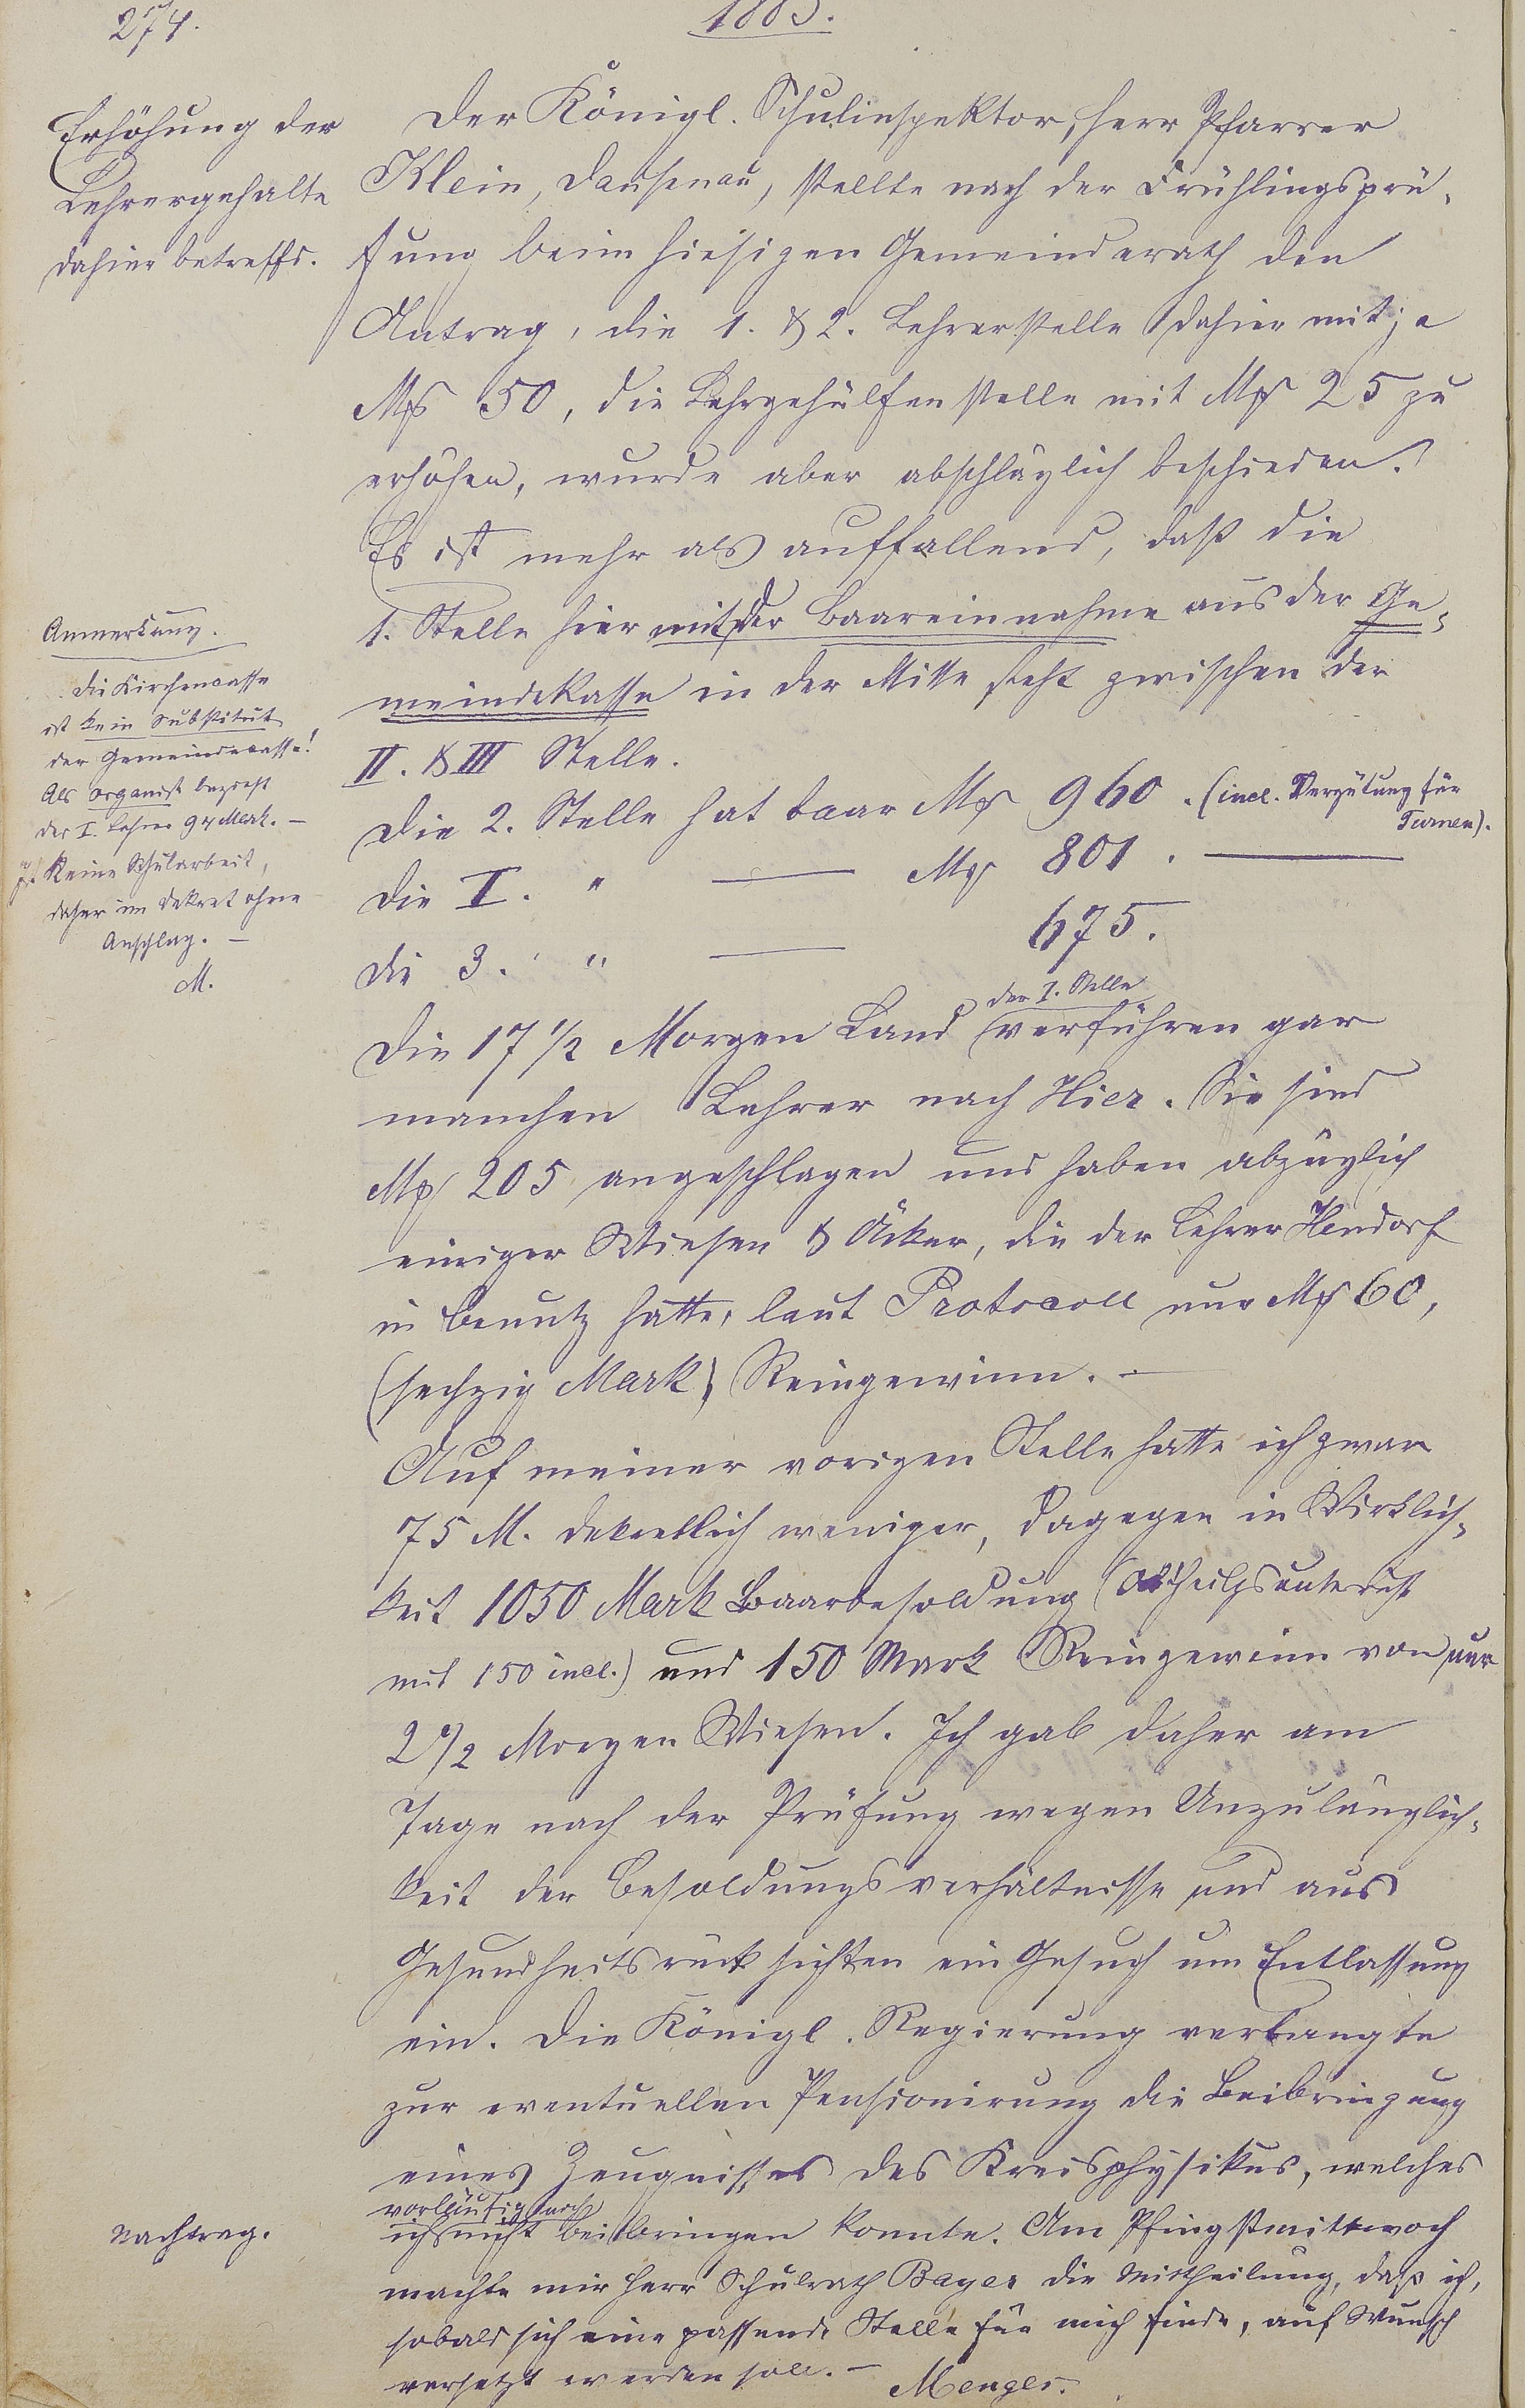 274.
1883.
Erhöhung der
Lehrergehalte
dahier betreffd.
Der Königl. Schulinspektor, Herr Pfarrer
Klein, Dausenau, stellte nach der Frühlingsprü-
fung beim hiesigen Gemeinderath den
Antrag, die 1. & 2. Lehrerstelle dahier mit je
Mk 50, die Lehrgehülfenstelle mit Mk 25 zu
erhöhen, wurde aber abschläglich beschieden.
Es ist mehr als auffallend, daß die
1. Stelle hier mit der Baareinnahme aus der Ge-
meindekasse in der Mitte steht zwischen der
II. & III Stelle.
Die 2. Stelle hat baar Mk 960. (incl. Vergütung für
Turnen).
Die I. " — Mk 801. —
Die 3. " — 675.
der I. Stelle
Die 17 1/2 Morgen Land verführen gar
manchen Lehrer nach Hier. Sie sind
Mk 205 angeschlagen und haben abzüglich
einiger Wiesen & Äcker, die der Lehrer Hendorf
in Benutz hatte, laut Protocoll nur Mk 60,
(sechzig Mark) Reingewinn. —
Auf meiner vorigen Stelle hatte ich zwar
75 M. dekretlich weniger, dagegen in Wirklich-
keit 1050 Mark Baarbesoldung
mit 150 incl.) und 150 Mark Reingewinn von nur
2 1/2 Morgen Wiesen. Ich gab daher am
Tage nach der Prüfung wegen Unzulänglich-
keit der Besoldungsverhältnisse und aus
Gesundheitsrücksichten ein Gesuch um Entlassung
ein. Die Königl. Regierung verlangte
zur eventuellen Pensionirung die Beibringung
eines Zeugnisses des Kreisphysikus, welches
vorläufig noch
ich nicht beibringen konnte. Am Pfingstmittwoch
machte mir Herr Schulrath Bayer die Mittheilung, daß ich,
sobald sich eine passende Stelle für mich finde, auf Wunsch
versetzt werden soll. —
Menges.
Anmerkung.
Die Kirchencasse
ist kein Substitut
der Gemeindecasse!
Als Organist bezieht
der I. Lehrer 94 Mark. —
Ist keine Schularbeit,
daher im Dekret ohne
Anschlag. —
M.
Nachtrag.